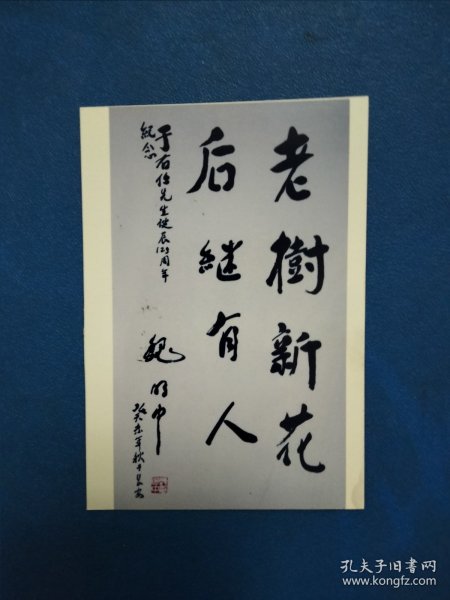 老樹新花
后继有人
于右任先生诞辰125周年
紀念
魏明中
癸未年秋于长安
孔夫子旧书网
www.kongfz.com